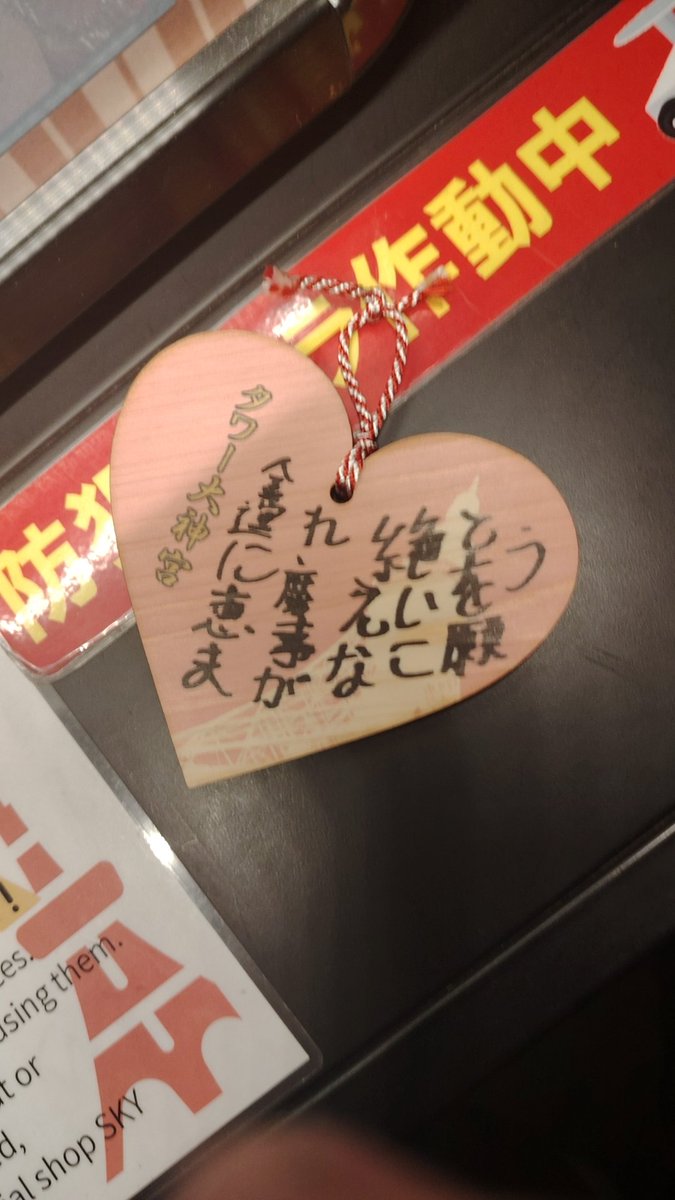 防犯
ラ作動中
タワー大神宮
金運に恵ま
れ、慶事が
絶えな
いこ
とを願
う
!
using them.
or
shop SKY